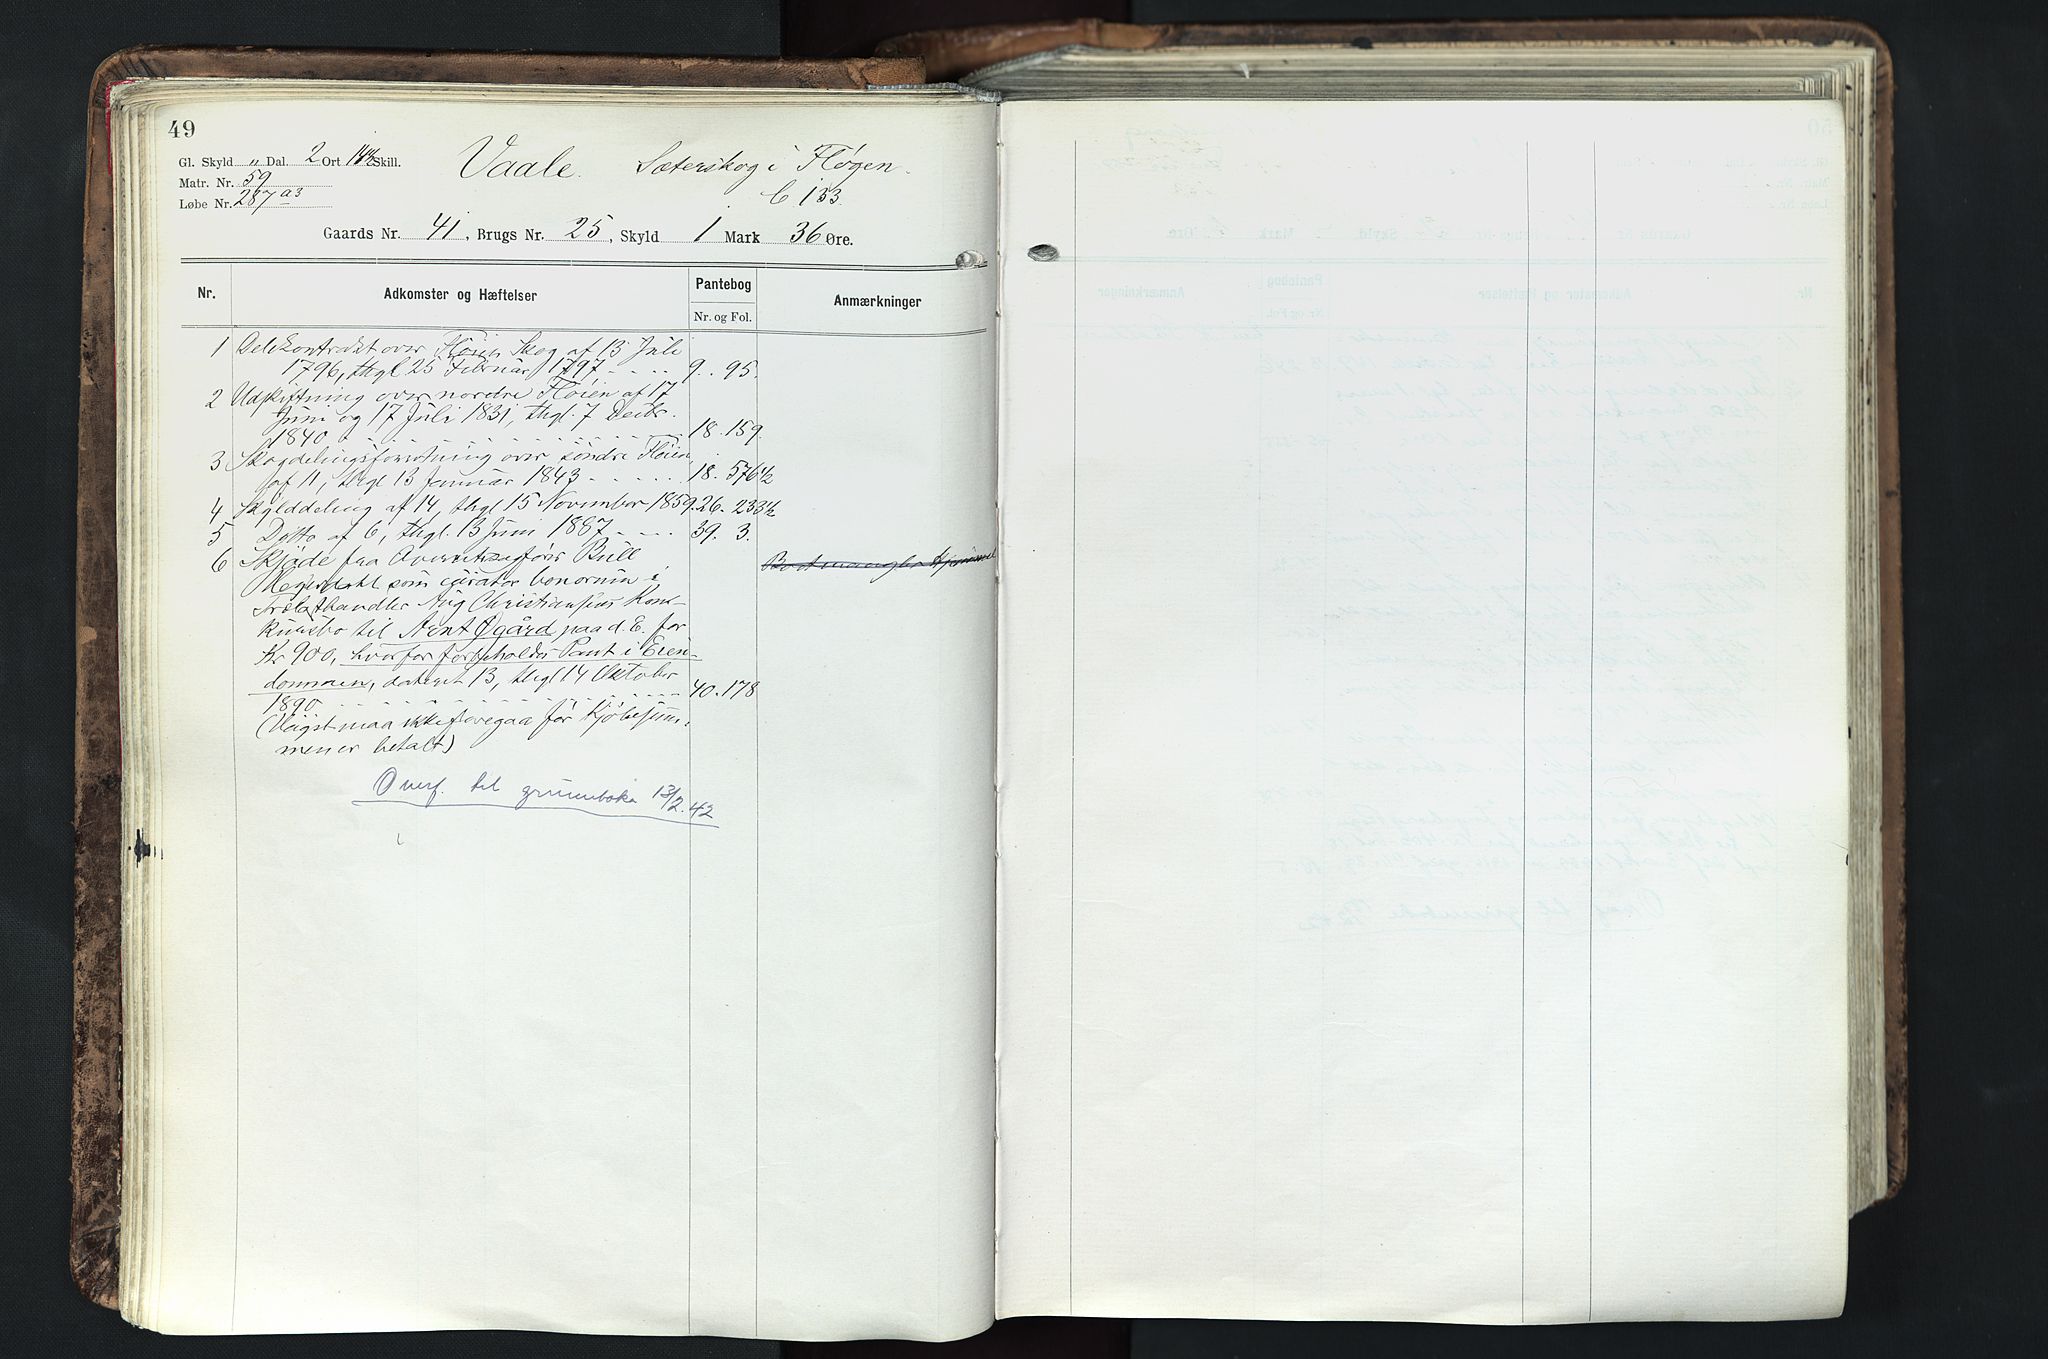 49
Gl. Skyld " Dal. 2 Ort 14½ Skill.
Vaale. Sæterskog i Fløgen.
Matr. Nr. 59
Løbe Nr. 287 a3
C. 133.
Gaards Nr. 41, Brugs Nr. 25, Skyld 1 Mark 36 Øre.
Nr. Adkomster og Hæftelser Pantebog Anmærkninger
Nr. og Fol.
1 Delekontrakt over Fløien Skog af 13 Juli
1796, thgl 25 Februar 1797 - - - - 9. 95.
2 Udskiftning over nordre Fløien af 17
Juni og 17 Juli 1831, thgl. 7 Decbr.
1840 - - - - 18. 159.
3 Skogdelingsforretning over søndre Fløien
af 11, thgl 13 Januar 1843 - - - - 18. 576½
4 Skylddeling af 14, thgl 15 November 1859. 26. 233½
5 Ditto af 6, thgl. 13 Juni 1887 - - - 39. 3.
6 Skjøde fra Overretssagfører Bull
som curator bonorum i Bet mangler Hjemmel
Trælasthandler Aug Christiansens Kon-
kursbo til Arnt Øgård paa d. E. for
Kr 900, hvorfor forbeholdes Pant i Eien-
dommen, dateret 13, thgl 14 Oktober
1890 - - - - 40. 178
(Hugst maa ikke foregaa før Kjøbesum-
men er betalt)
Overf. til grunnboka 13/2.42